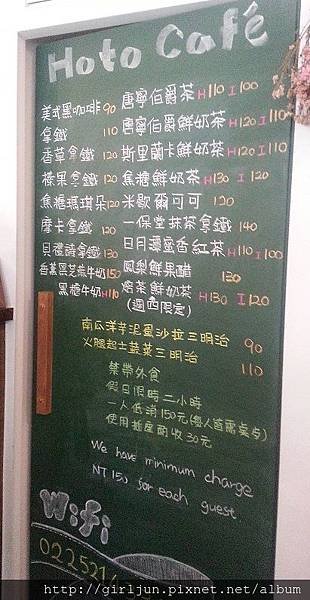 Hoto Café
美式黑咖啡 90
拿鐵 110
香草拿鐵 120
榛果拿鐵 120
焦糖瑪琪朵 120
摩卡拿鐵 120
貝禮詩拿鐵 130
香蕉芝麻牛奶 150
黑糖牛奶 H110
唐寧伯爵茶 H110 I100
唐寧伯爵鮮奶茶 H120 I110
斯里蘭卡鮮奶茶 H120 I110
焦糖鮮奶茶 H130 I120
米歇爾可可 120
一保堂抹茶拿鐵 140
日月潭蜜香紅茶 H110 I100
鳳梨鮮果醋 130
焙茶鮮奶茶 H130 I120
(週四限定)
南瓜洋芋泥蛋沙拉三明治 90
火腿起士蔬菜三明治 110
禁帶外食
假日限時二小時
一人低消150元(每人皆需点)
使用插座酌收30元
We have minimum charge
NT 150 for each guest.
Wifi
022521
http://girljun.pixnet.net/album